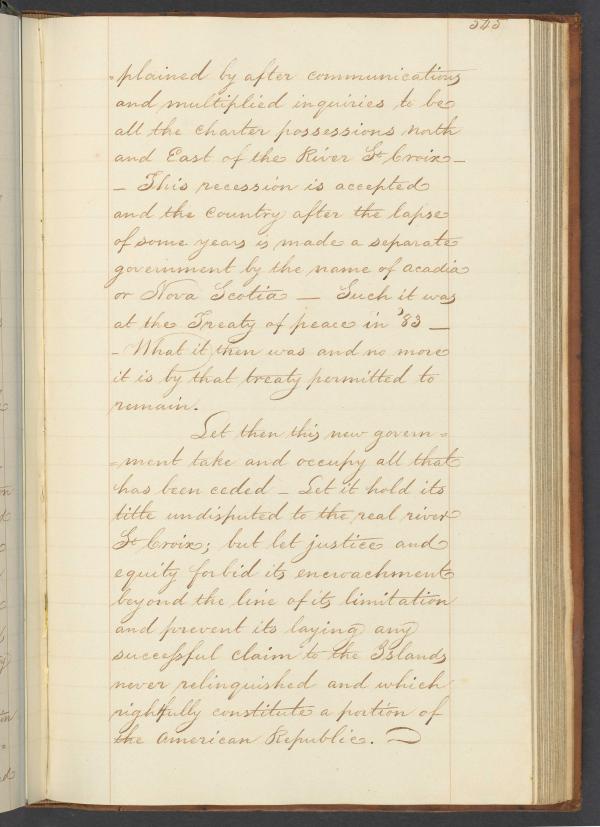 545
-plained by after communications
and multiplied inquiries to be
all the charter possessions north
and East of the River St Croix –
– This recession is accepted
and the Country after the lapse
of some years is made a separate
government by the name of Acadia
or Nova Scotia – Such it was
at the Treaty of peace in '83 –
– What it then was and no more
it is by that treaty permitted to
remain.
Let then this new govern=
=ment take and occupy all that
has been ceded – Let it hold its
title undisputed to the real river
St Croix; but let justice and
equity forbid its encroachment
beyond the line of its limitation
and prevent its laying any
successful claim to the Islands
never relinquished and which
rightfully constitute a portion of
the American Republic.